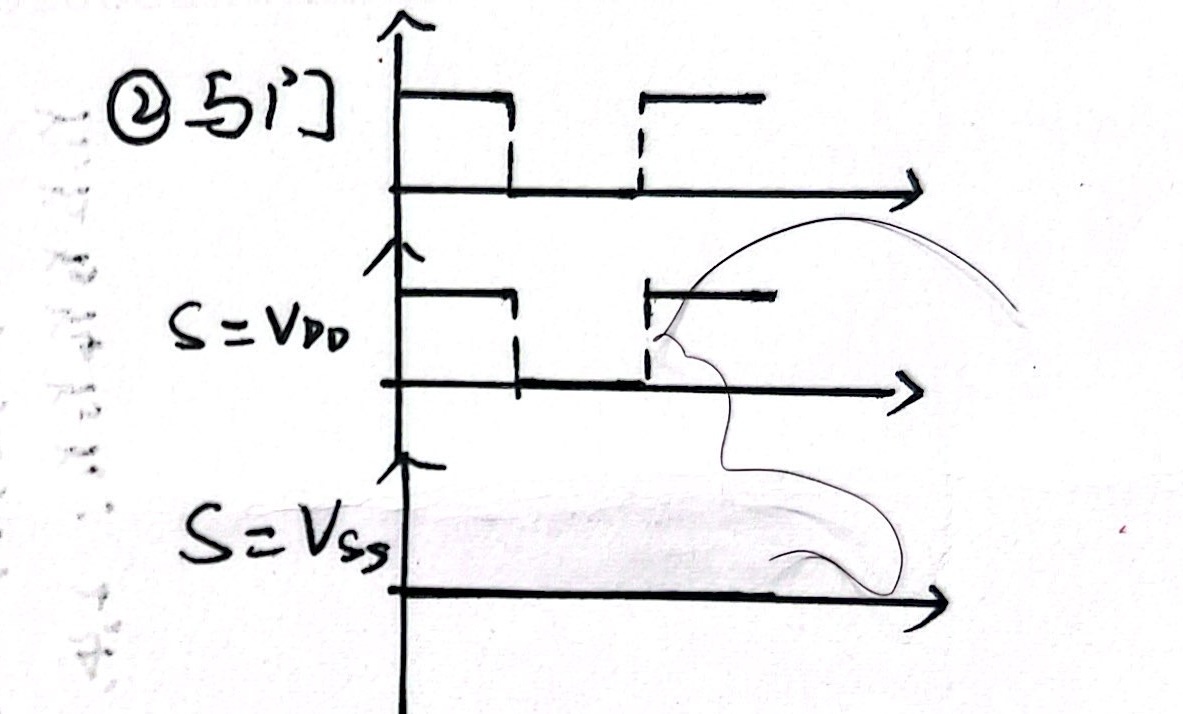 ②与门
S=VDD
S=VSS